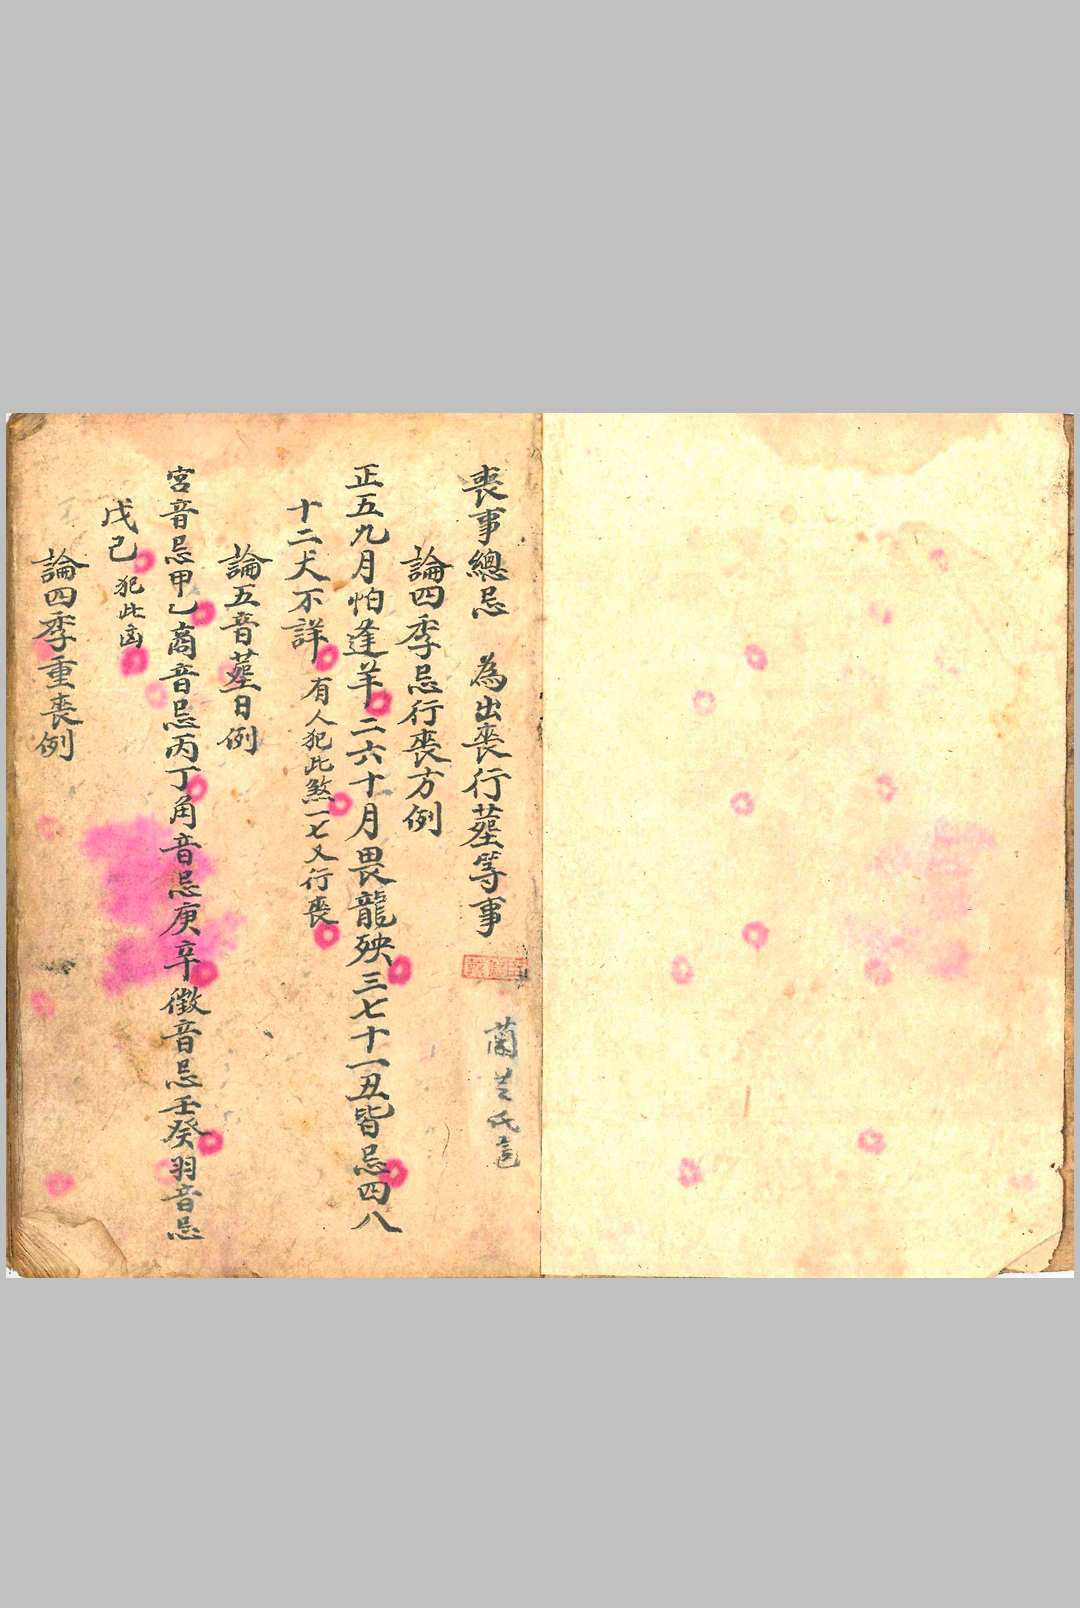 喪事總忌　為出喪行塟等事
蘭
論四季忌行喪方例
正五九月怕逢羊二六十月畏龍殃三七十一丑皆忌四八
十二犬不詳　有人犯此煞一七又行喪
論五音塟日例
宮音忌甲乙商音忌丙丁角音忌庚辛徵音忌壬癸羽音忌
戊己　犯此凶
論四季重喪例